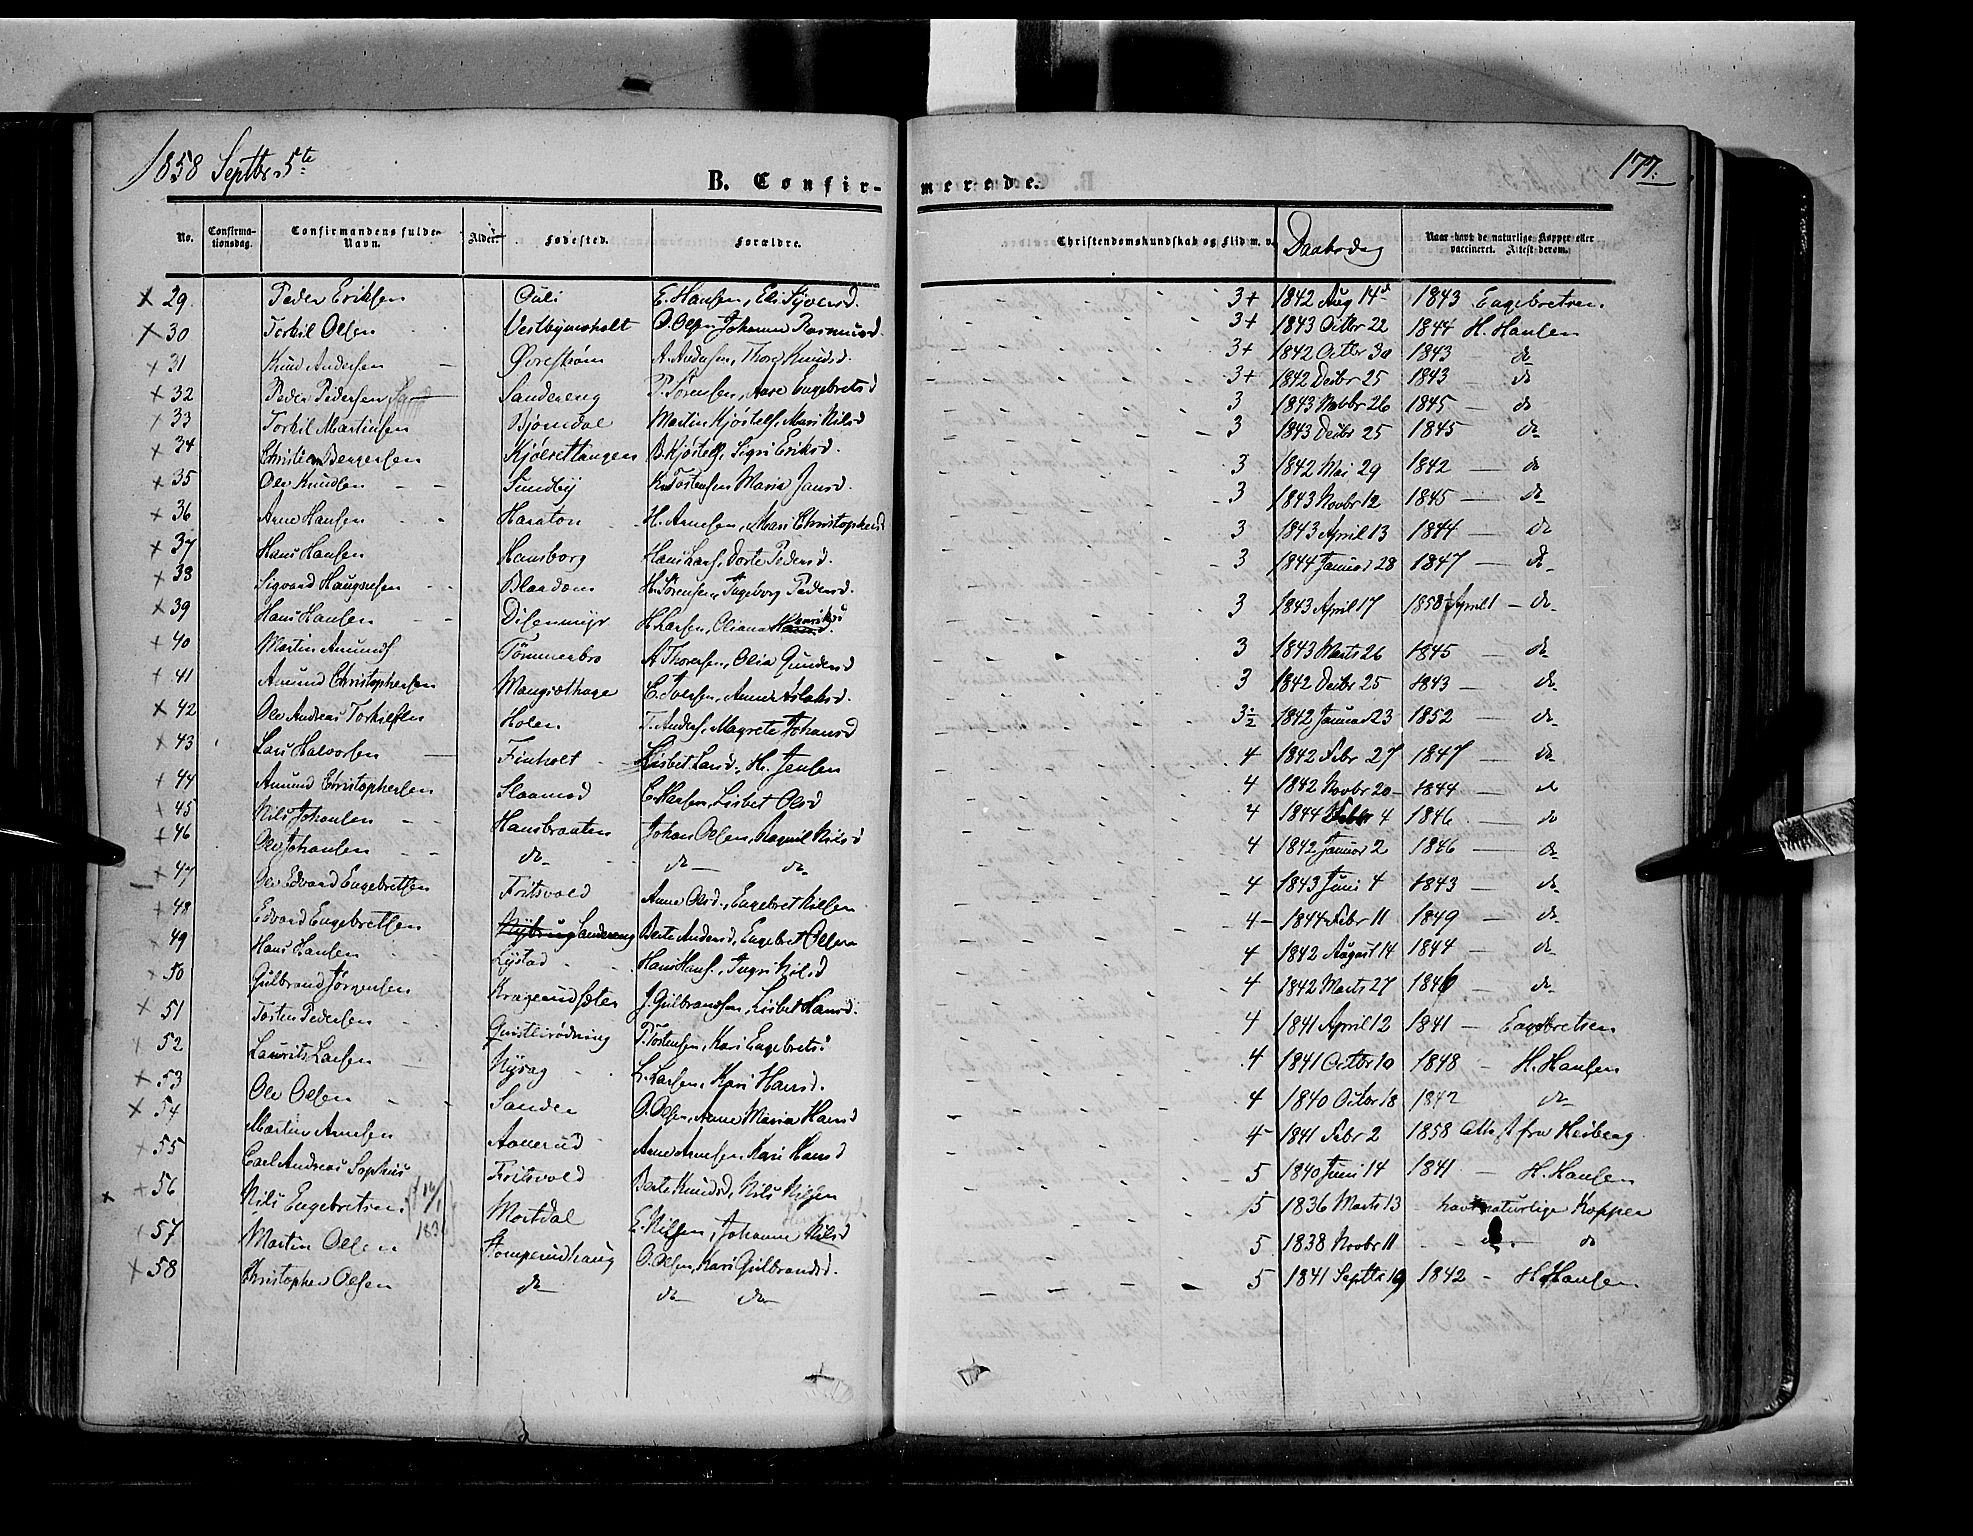 1858 Septbr 5te
177.
B. Confirmerede.
No. Confirmationsdag. Confirmandens fulde Navn. Alder. Fødested. Forældre. Christendomskundskab og Flid m. v. Daabsdag Naar havt de naturlige Kopper eller vaccineret. Attest derom.
29 Peder Eriksen Ouli E. Hansen, Eli Syversd. 3+ 1842 Aug 14d 1843 Engebretsen.
30 Torkil Olsen Vestbymoholt O. Olsen, Johanne Rasmusd. 3+ 1843 Octbr 22 1844 H. Hansen
31 Knud Andersen A. Andersen, Knudsd. 3+ 1842 Octbr 30 1843 do
32 Peder Pedersen Sandereng P. Sørensen, Aase Engebretsd 3+ 1842 Decbr 25 1843 - do
33 Torkil Martinsen Bjørndal Martin Kjøstels, Mari Nilsd 3 1843 Novbr 26 1845 - do
34 Christian Bergersen Kjølsettangen B. Kjøstels, Sigri Eriksd. 3 1843 Decbr 25 1845 do
35 Ole Knudsen Sundby K. Tostensen Maria Jansd. 3 1842 Mai 29 1842 - do
36 Arne Hansen Haraton H. Arnesen, Mari Christophersd 3 1843 Novbr 12 1845 - do
37 Hans Hansen Hansborg Hans Hans., Dorte Pedersd. 3 1843 April 13 1844 - do
38 Sigvard Haugnesen Blaadom H. Sørensen, Ingeborg Pedersd. 3 1844 Januar 28 1847 - do
39 Hans Hansen Disenmyr H. Larsen, Oliana Henriksd 3 1843 April 17 1858 April 1 - do
40 Martin Amunds Tømmerbro A Thoresen, Olia Gundersd 3 1843 Marts 26 1845 do
41 Amund Christophersen Mangsethage C. Iversen, Anne Aslaksd. 3 1842 Decbr 25 1843 - do
42 Ole Andreas Torkilsen Holen T. Anders, Magrete Johansd 3½ 1842 Januar 23 1852 - do
43 Lars Halvorsen Finholt Lisbet Larsd, H. Jensen 4 1842 Febr 27 1847 - do
44 Amund Christophersen Slaamod C. Hansen, Lisbet Olsd 4 1842 Novbr 20 1844 do
45 Nils Johansen Hansbraaten Johan Olsen, Ragnil Nilsd 4 1844 Febr 4 1846 - do
46 Ole Johansen do do do 4 1842 Januar 2 1846 - do
47 Ole Edvard Engebretsen Fritsvold Anne Olsd., Engebret Nilsen 4 1843 Juni 4 1843 - do
48 Edvard Engebretsen Sandereng Berte Andersd, Engebret Olsen 4 1844 Febr 11 1849 - do
49 Hans Hansen Lystad Hans Hans., Ingri Nilsd 4 1842 August 14 1844 - do
50 Gulbrand Jørgensen Kragerudsæter J. Gulbrandsen, Lisbet Hansd. 4 1842 Marts 27 1846 - do
51 Tosten Pedersen Qvistlirødning P. Tostensen, Kari Engebretsd 4 1841 April 12 1841 - Engebretsen
52 Laurits Larsen Nysag L. Larsen, Kari Hansd. 4 1841 Octbr 10 1848 - H. Hansen
53 Ole Olsen Sanden O. Olsen, Anne Maria Hansd 4 1840 Octbr 18 1842 do
54 Martin Arnesen Aanerud Arne Arnesen, Kari Hansd 4 1841 Febr 2 1858 Attest fra Heiberg
55 Carl Andreas Sophus Fritsvold Berte Knudsd, Nils Nilsen 5 1840 Juni 14 1841 - H. Hansen
56 Nils Engebretsen Mortdal E. Nilsen, Johanne Nilsd 5 1836 Marts 13 havt naturlige Kopper
57 Martin Olsen Stomperudhaug O. Olsen, Kari Gulbrandsd. 5 1838 Novbr 11 do do
58 Christopher Olsen do do do 5 1841 Septbr 19 1842 - H. Hansen